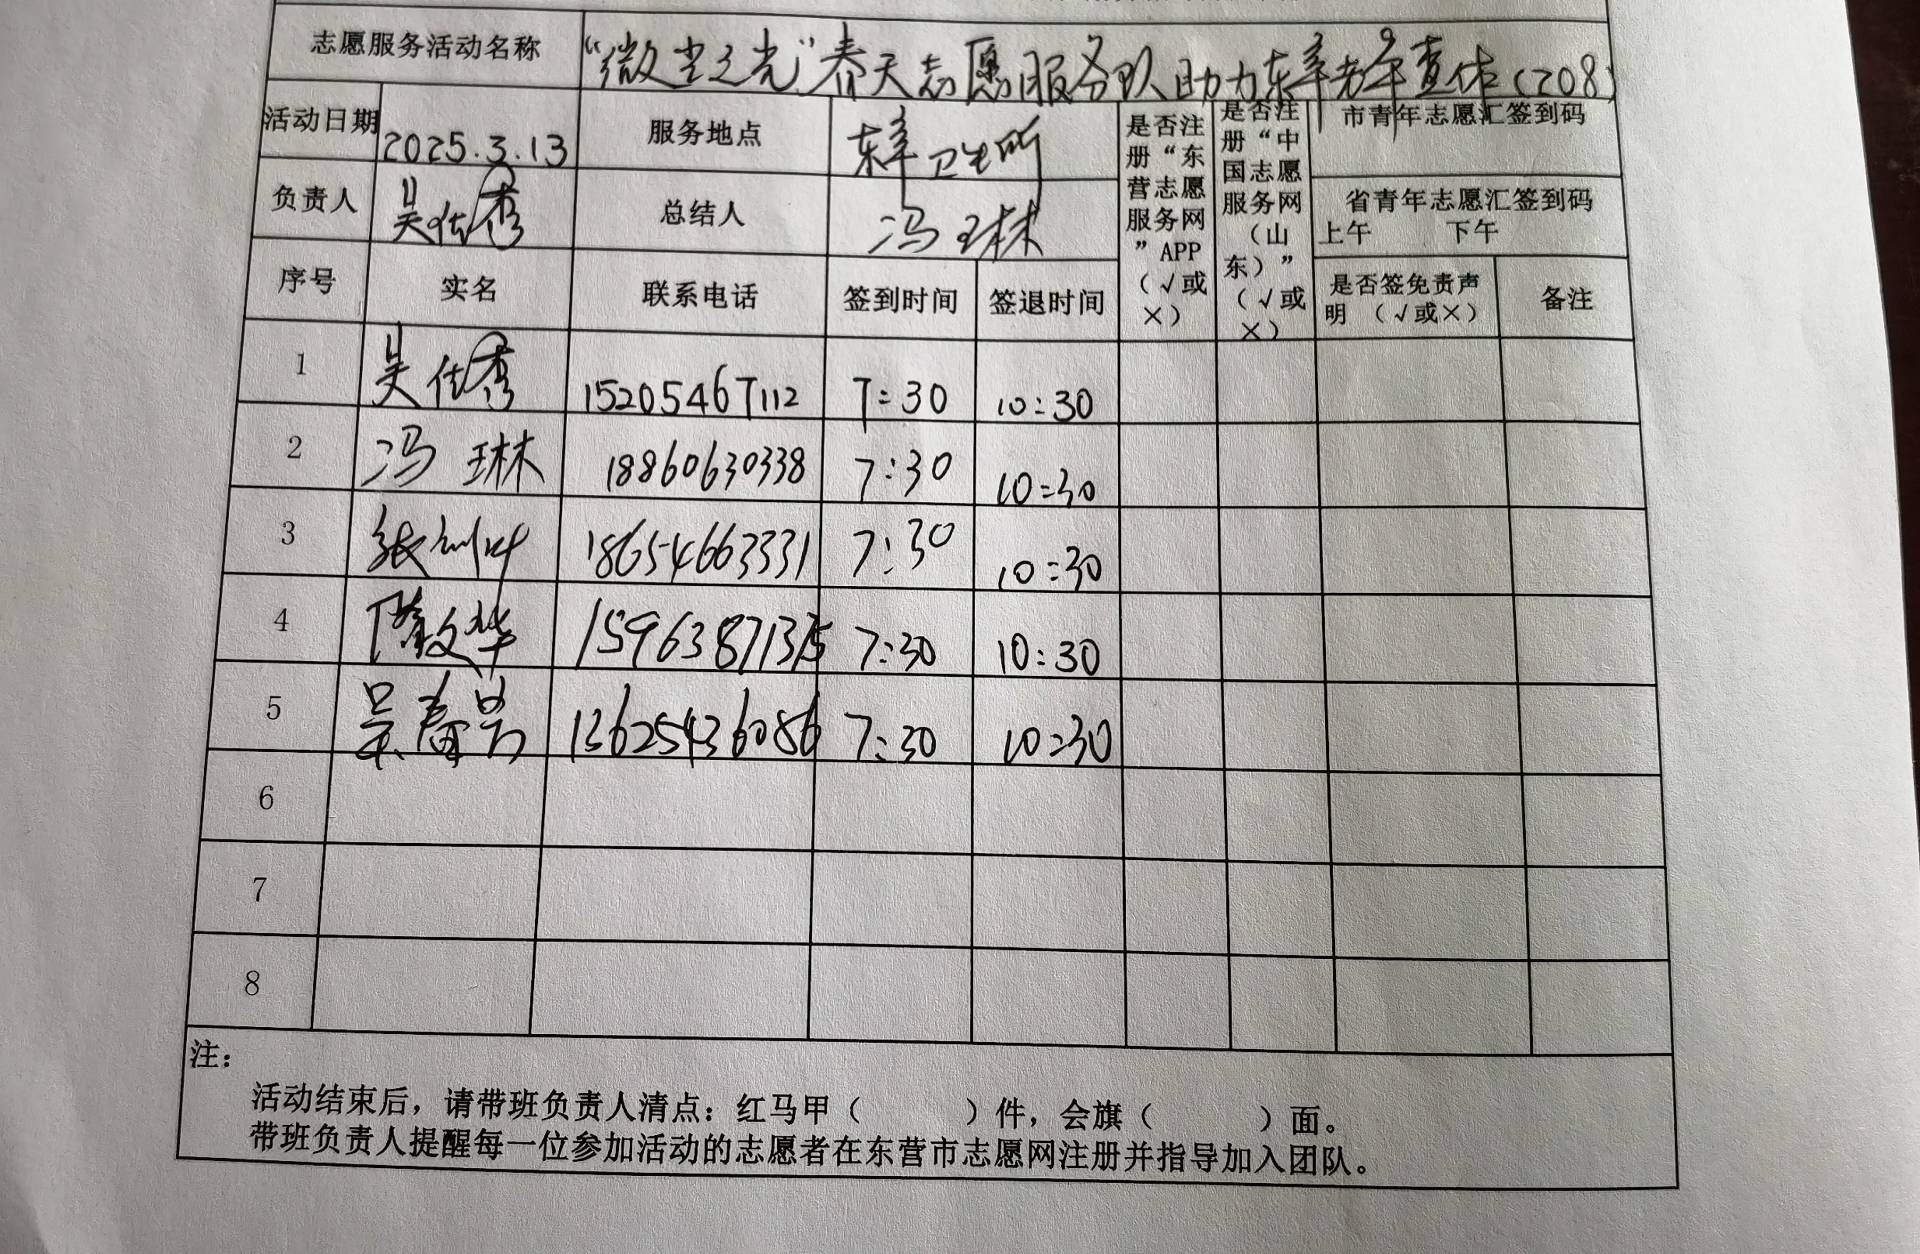 志愿服务活动名称 “微尘之光”春天志愿服务队助力东辛老年查体(208)
活动日期 2025.3.13 服务地点 东辛卫生所 是否注册“东营志愿服务网”APP（√或×） 是否注册“中国志愿服务网（山东）”（√或×） 市青年志愿汇签到码
负责人 吴佳秀 总结人 冯琳 省青年志愿汇签到码
上午 下午
序号 实名 联系电话 签到时间 签退时间 是否签免责声明（√或×） 备注
1 吴佳秀 15205467112 7:30 10:30
2 冯琳 18860630338 7:30 10:30
3 张 18654663331 7:30 10:30
4 隆文华 15963871375 7:30 10:30
5 吴春 13625436086 7:30 10:30
6
7
8
注：
活动结束后，请带班负责人清点：红马甲（ ）件，会旗（ ）面。
带班负责人提醒每一位参加活动的志愿者在东营市志愿网注册并指导加入团队。